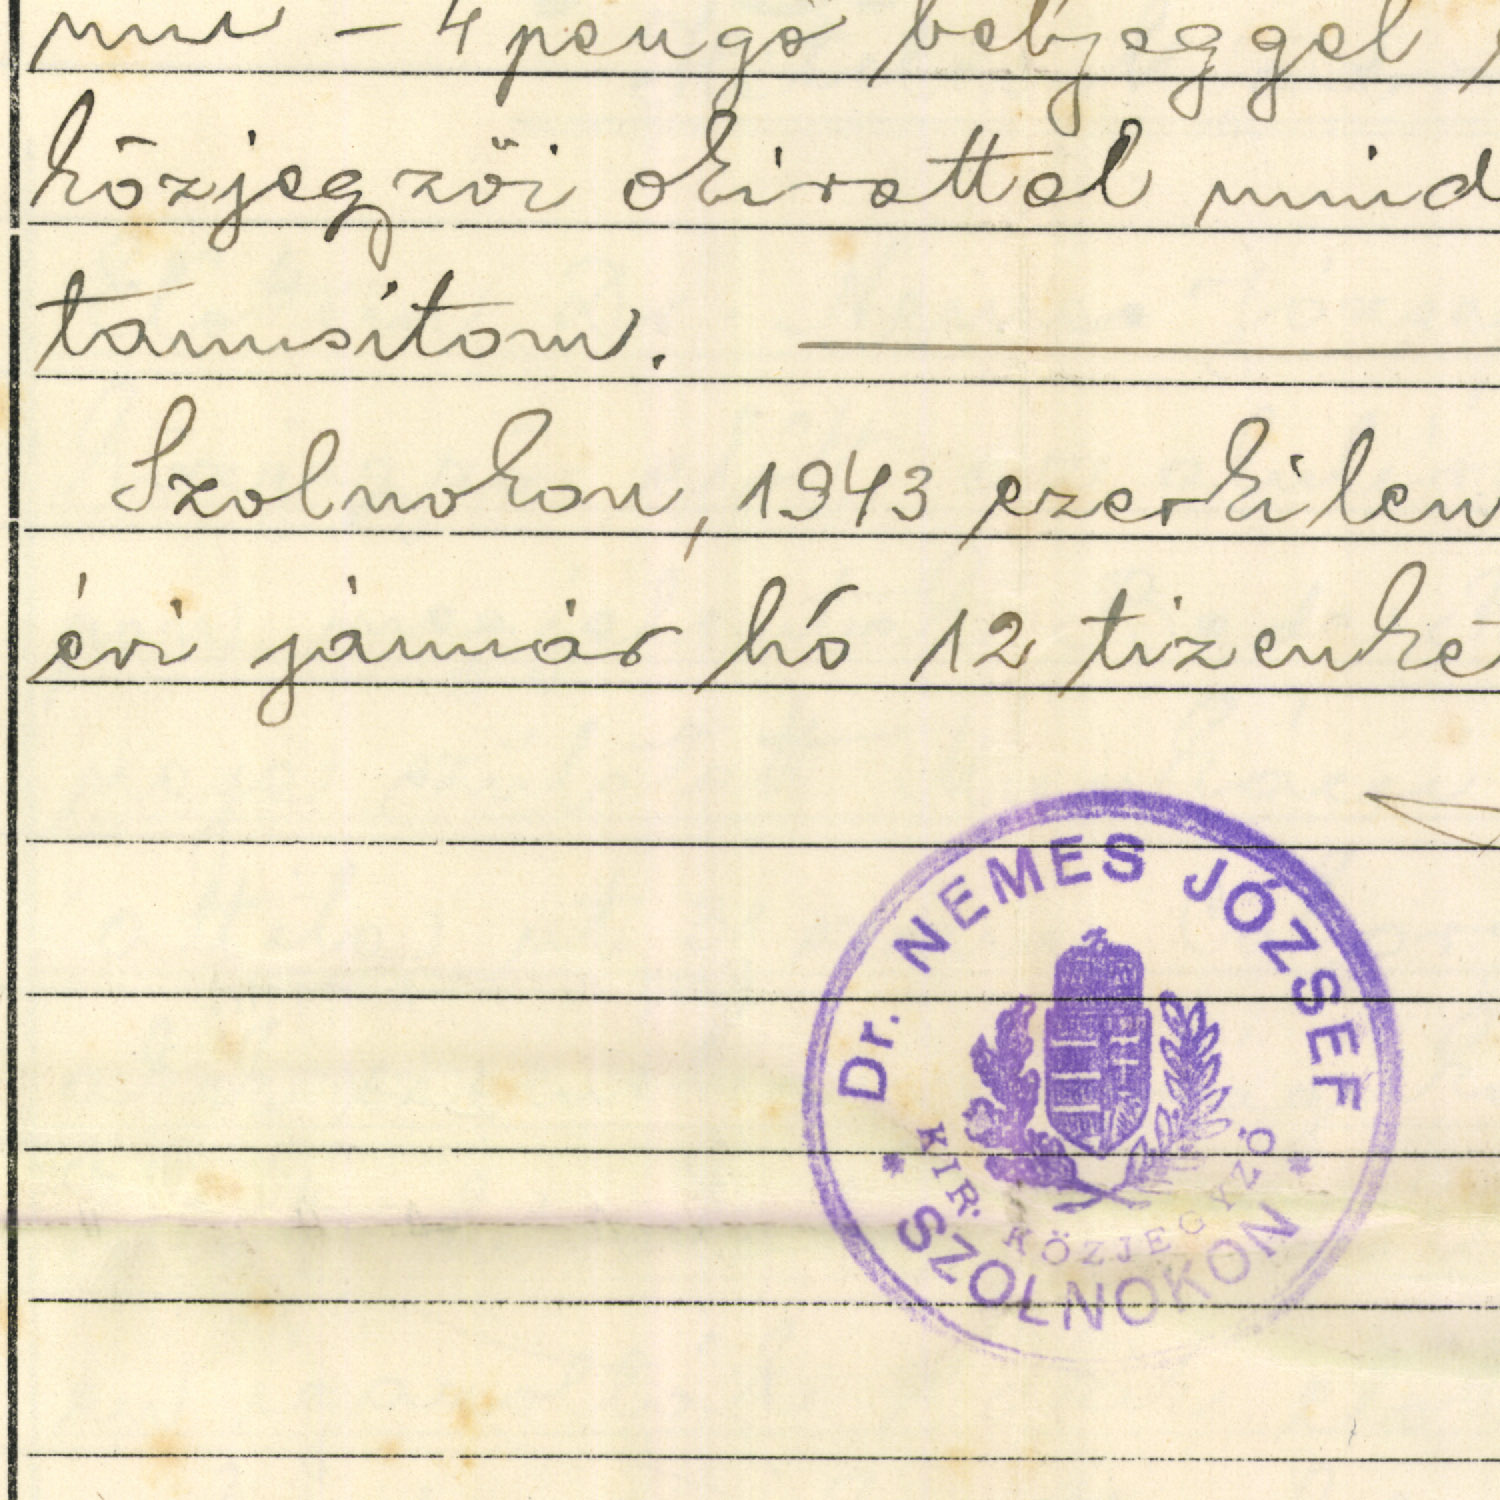 – 4 pengő bélyeggel
közjegyzői okirattal mind
tanusítom.
Szolnokon, 1943 ezerkilen
évi január hó 12 tizenket
Dr. NEMES JÓZSEF
KIR. KÖZJEGYZŐ
SZOLNOKON